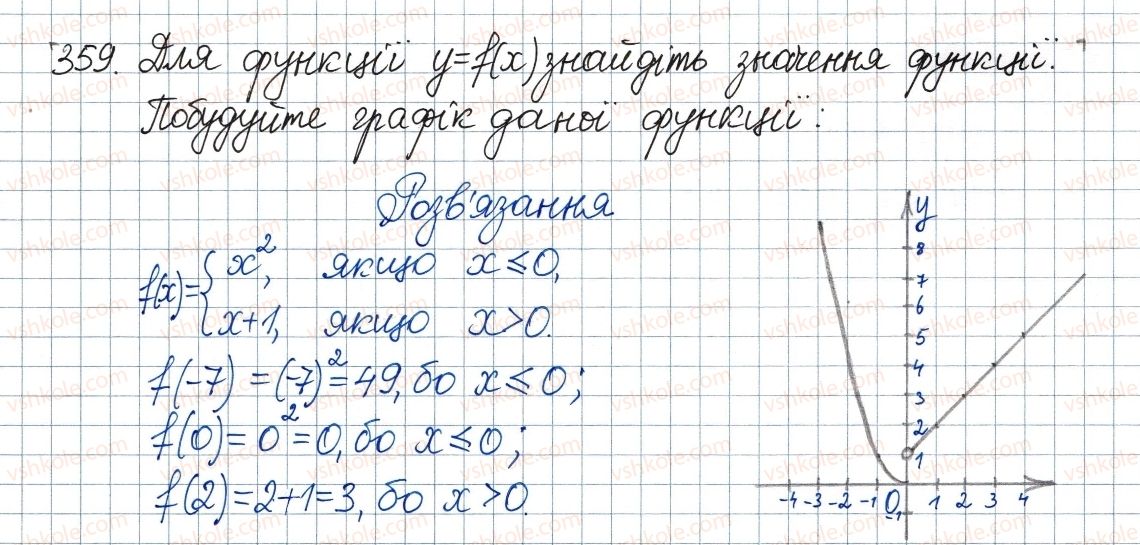 359. Для функції y=f(x) знайдіть значення функції.
Побудуйте графік даної функції:
Розв'язання
f(x)={x², якщо x≤0,
x+1, якщо x>0.
f(-7)=(-7)²=49, бо x≤0;
f(0)=0²=0, бо x≤0;
f(2)=2+1=3, бо x>0.
y
8
7
6
5
4
3
2
1
-4 -3 -2 -1 0 1 2 3 4
-1
vshkole.com